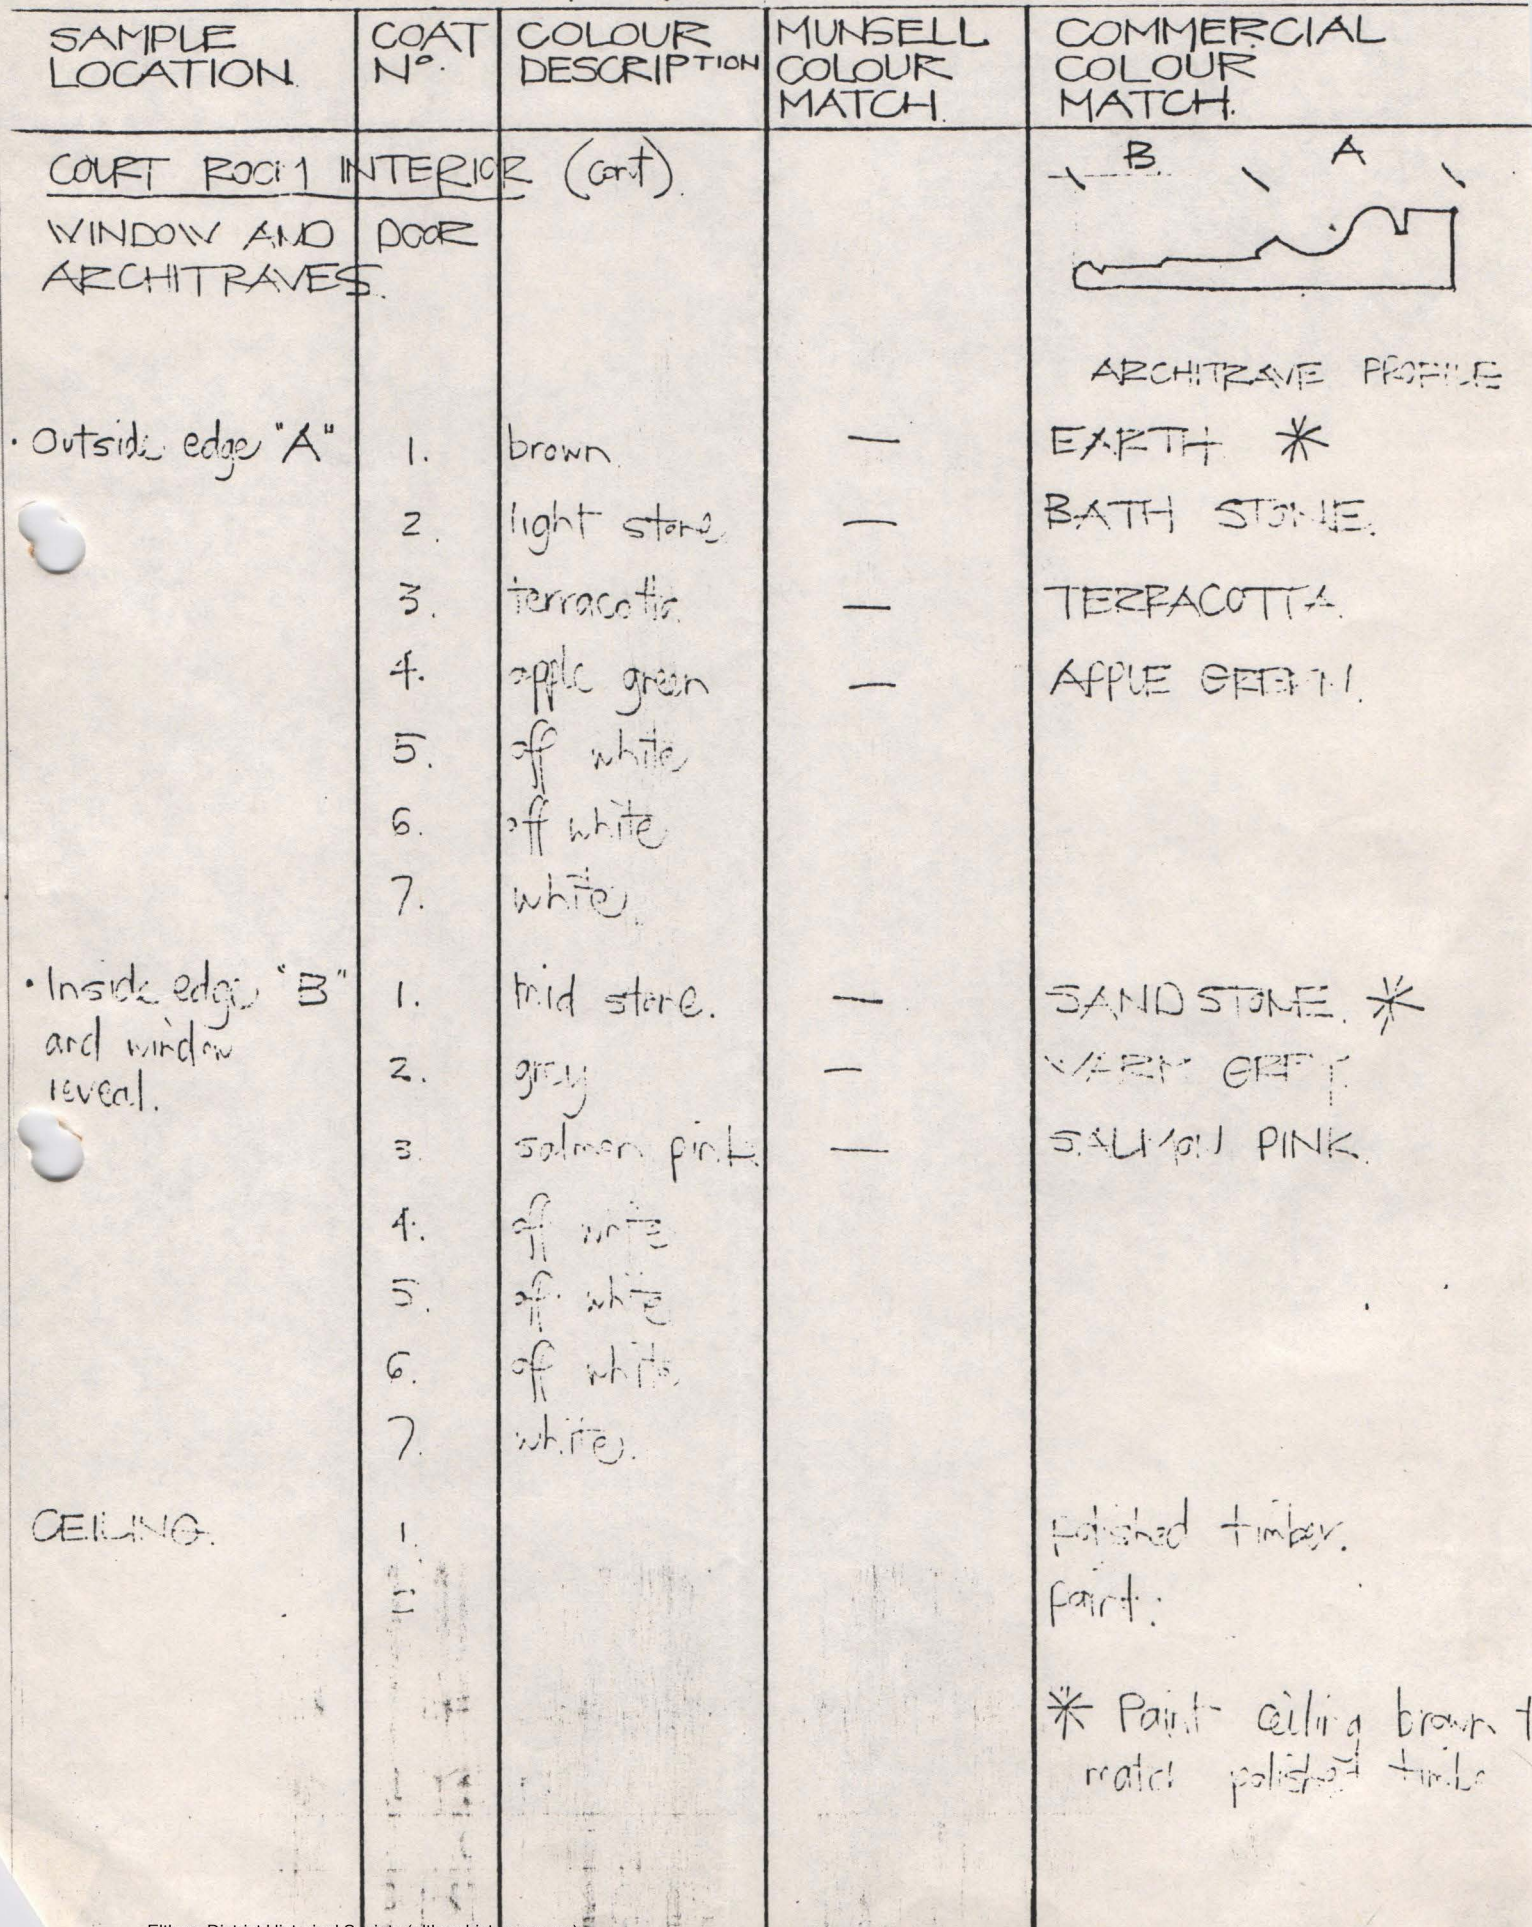 SAMPLE LOCATION. | COAT Nº. | COLOUR DESCRIPTION | MUNSELL COLOUR MATCH. | COMMERCIAL COLOUR MATCH.
COURT ROOM INTERIOR (cont).
B. A
WINDOW AND DOOR
ARCHITRAVES.
ARCHITRAVE PROFILE
• Outside edge "A" 1. brown. — EARTH *
2. light stone — BATH STONE.
3. terracotta. — TERRACOTTA.
4. apple green — APPLE GREEN.
5. off white
6. off white
7. white.
• Inside edge "B" 1. mid stone. — SANDSTONE. *
and window
2. grey — WARM GREY.
reveal.
3. salmon pink — SALMON PINK.
4. off white
5. off white
6. off white
7. white.
CEILING. 1. polished timber.
paint.
* Paint ceiling brown
match polished